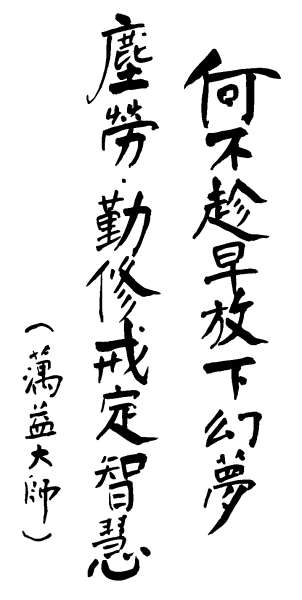 何不趁早放下幻夢
塵勞.勤修戒定智慧
(蕅益大師)